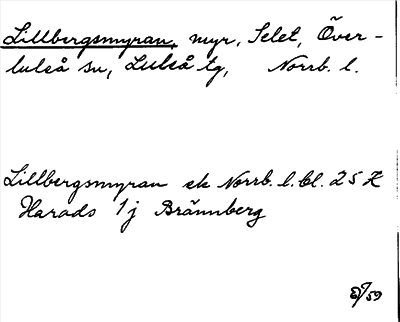 Lillbergsmyran, myr, Selet, Över-
luleå sn, Luleå tg, Norrb. l.
Lillbergsmyran ek Norrb. l. bl. 25 K
Harads 1j Brännberg
/59